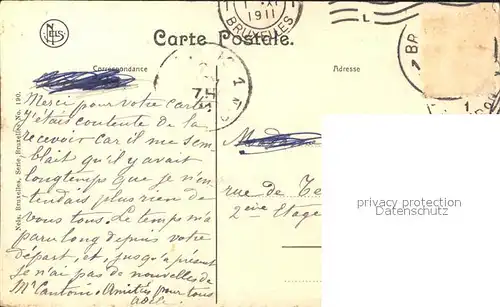 NELS
1 XI
1911
BRUXELLES
L
BR
1
Carte Postale.
Correspondance
Adresse
7-H
1
Nels, Bruxelles, Serie Bruxelles, No. 190.
Merci pour votre carte
J'étais contente de la
recevoir car il me sem-
blait qu'il y avait
longtemps que je n'en-
tendais plus rien de
vous tous. Le temps m'a
paru long depuis votre
départ, et, jusqu'à présent
je n'ai pas de nouvelles de
Mr Cantoni. Amitiés pour tous
Adèle
rue de Te
2ème Etage
privacy protection
Datenschutz